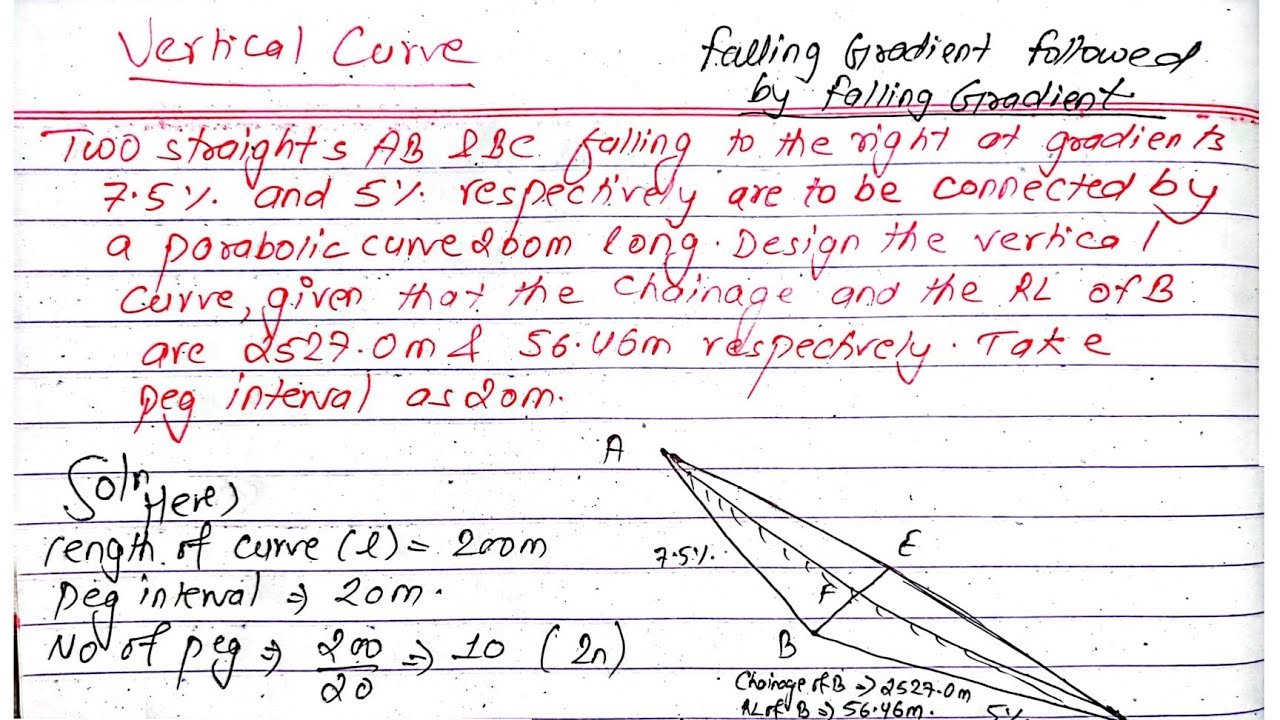 Vertical Curve
falling Gradient followed
by falling Gradient
Two straights AB & BC falling to the right at gradients
7.5% and 5% respectively are to be connected by
a parabolic curve 200m long. Design the vertical
curve, given that the chainage and the RL of B
are 2527.0m & 56.46m respectively. Take
peg interval as 20m.
Soln Here,
length of curve (l) = 200m
Peg interval ⇒ 20m.
No of peg ⇒ 200/20 ⇒ 10 (2n)
A
E
7.5%
F
B
Chainage of B ⇒ 2527.0m
RL of B ⇒ 56.46m.
5%